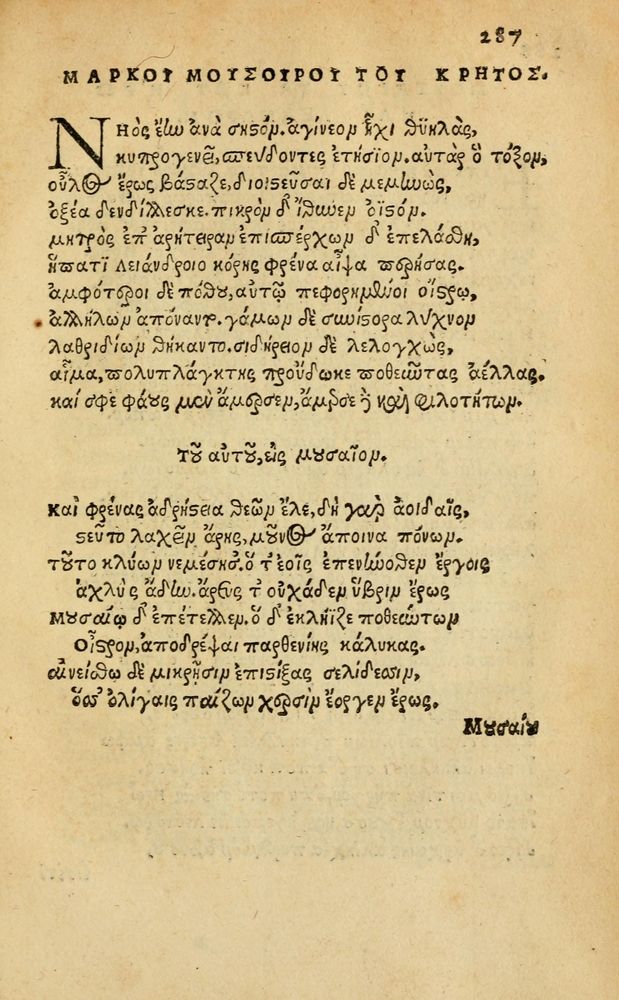 287
ΜΑΡΚΟΥ ΜΟΥΣΟΥΡΟΥ ΤΟΥ ΚΡΗΤΟΣ.
Νηὸς ἔην ἀνὰ σηστόν. ἀγίνεον ᾗχι θύηλὰς,
κυπρογενεῖ, σπεύδοντες ἐτήσιον. αὐτὰρ ὃ τόξον,
οὖλος ἔρως βάσταζε, διοϊστεῦσαι δὲ μεμηνὼς,
ὀξέα δενδίλλεσκε. πικρὸν δ' ἴθυνεν ὀϊστόν.
μητρὸς ἐπ' ἀρήτειραν ἐπισπέρχων δ' ἐπελάσθη,
ἥπατι Λειάνδροιο κόρης φρένα αἶψα πορήσας.
ἀμφότεροι δὲ πόθου, αὐτῷ πεφορημένοι οἴστρῳ,
ἀλλήλων ἀπόναντο. γάμων δὲ συνίστορα λύχνον
λαθριδίων θήκαντο. σιδήρειον δὲ λελογχὼς,
αἷμα, πολυπλάγκτης προὔδωκε ποθεῦντας ἀέλλας.
καί σφε φάους μὲν ἄμερσεν, ἄμερσε δὲ καὶ φιλοτήτων.
τοῦ αὐτοῦ, εἰς μουσαῖον.
Καὶ φρένας ἀδρήστεια θεῶν ἕλε, δὴ γὰρ ἀοιδαῖς,
στεῦτο λαχεῖν ἄρης, μοῦνος ἄποινα πόνων.
τοῦτο κλύων νεμέσησ'. ὅ τ' ἑοῖς ἐπενήνοθεν ἔργοις
ἀχλὺς ἄδην. ἄρεός τ' οὐχάδεν ὕβριν ἔρως
Μουσαίῳ δ' ἐπέτελλεν. ὃ δ' ἐκλήϊζε ποθεύντων
Οἶστρον, ἀποδρέψαι παρθενίης κάλυκας.
αἰνείσθω δὲ μικρῇσιν ἐπιστίξας σελίδεσσιν,
ὅσσ' ὀλίγαις παίζων χερσὶν ἔοργεν ἔρως.
Μουσαίου